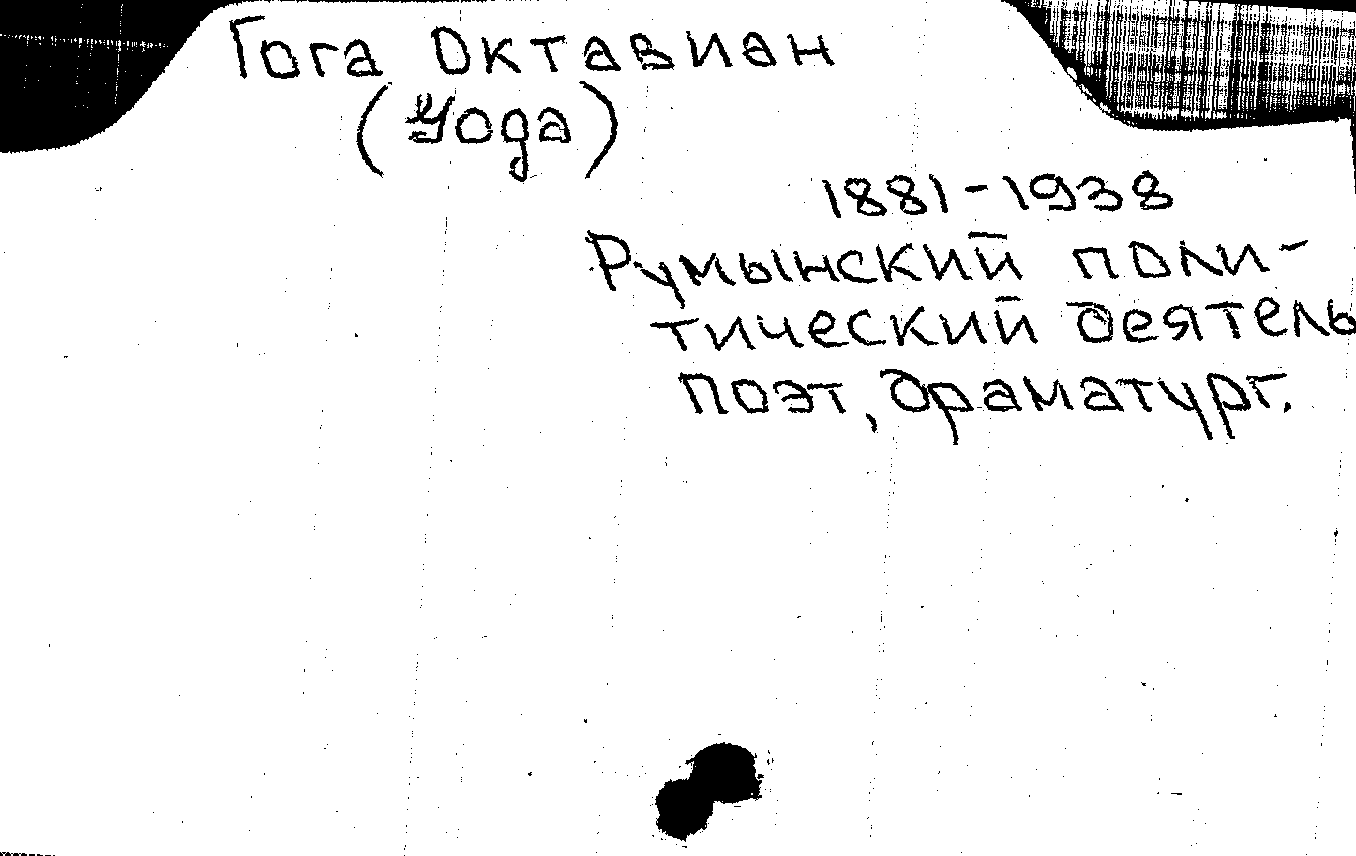 Гога Октавиан
(Goga)
1881-1938
Румынский поли-
тический деятель
поэт, драматург.